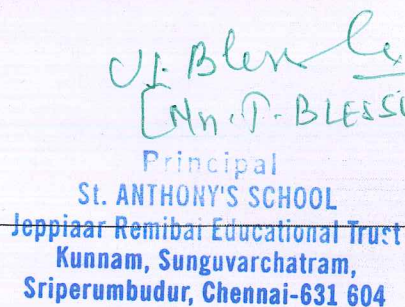 [Mr. T. BLESSI
Principal
St. ANTHONY'S SCHOOL
Jeppiaar Remibai Educational Trust
Kunnam, Sunguvarchatram,
Sriperumbudur, Chennai-631 604